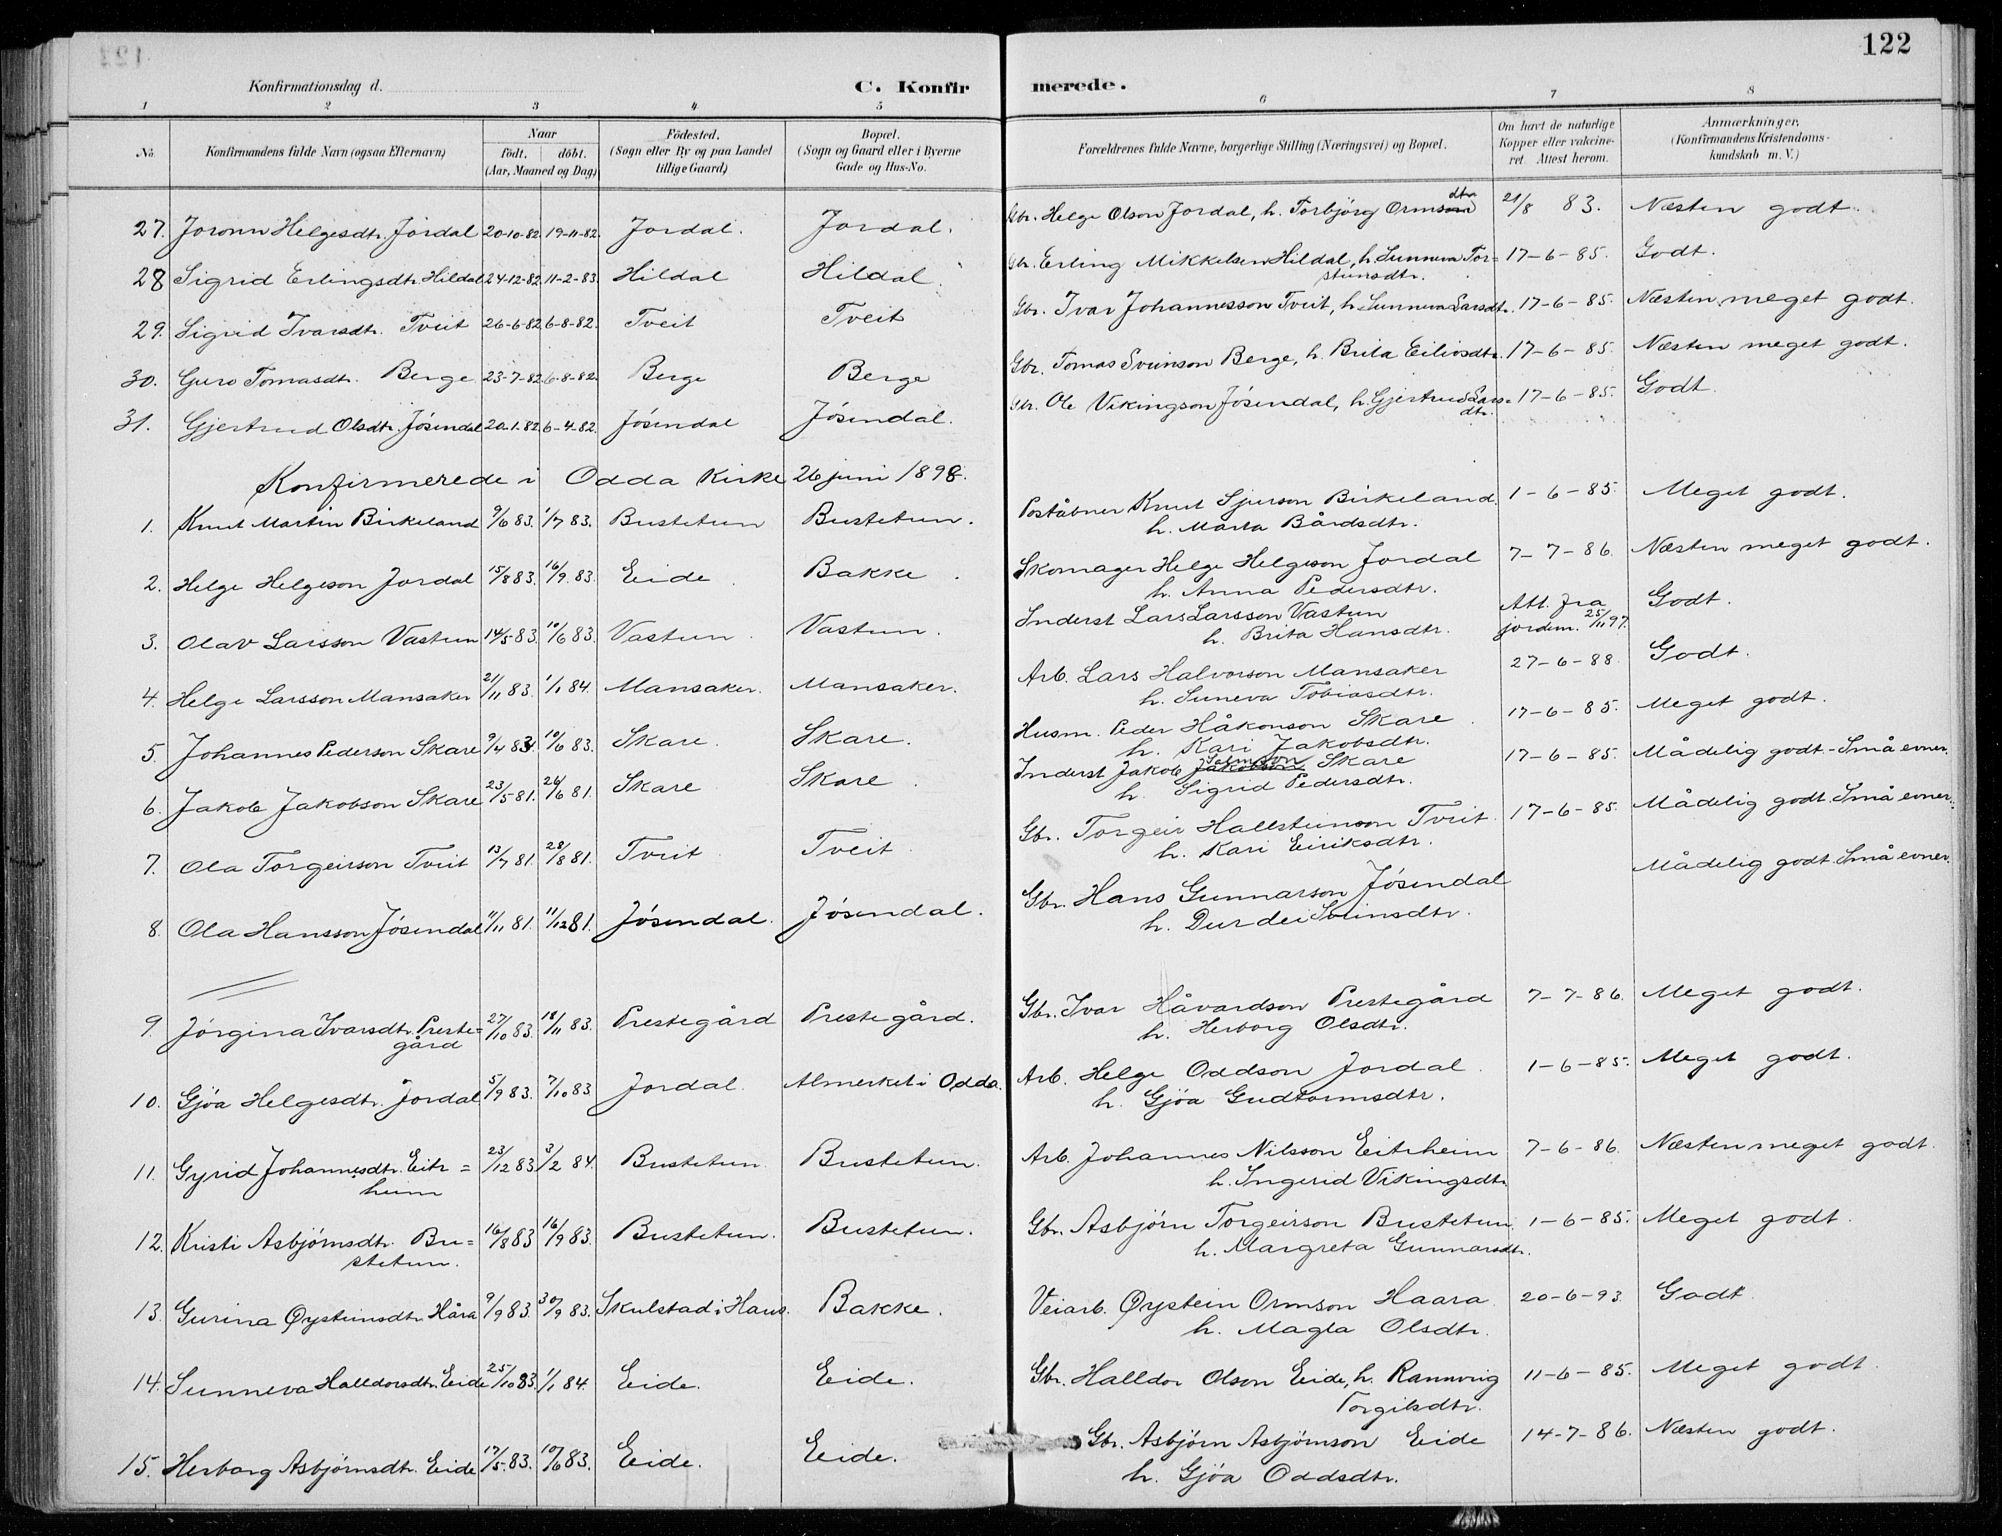 122
Konfirmationsdag d. C. Konfirmerede.
1 2 3 4 5 6 7 8
No. Konfirmandens fulde Navn (ogsaa Efternavn) Naar födt. döbt. (Aar, Maaned og Dag) Födested. (Sogn eller By og paa Landet tillige Gaard) Bopæl. (Sogn og Gaard eller i Byerne Gade og Hus-No. Forældrenes fulde Navne, borgerlige Stilling (Næringsvei) og Bopæl. Om havt de naturlige Kopper eller vakcineret. Attest herom. Anmærkninger. (Konfirmandens Kristendomskundskab m. V.)
27. Joronn Helgesdtr. Jordal 20-10-82. 19-11-82. Jordal. Jordal. Gbr. Helge Olson Jordal, h. Torbjörg Ormsdtr 21/8 83. Næsten godt.
28 Sigrid Erlingsdtr. Hildal 24-12-82. 11-2-83. Hildal Hildal. Gbr. Erling Mikkelsen Hildal, h. Sunneva Tor=
steinsdtr. 17-6-85. Godt.
29. Sigrid Ivarsdtr. Tveit 26-6-82. 6-8-82. Tveit Tveit Gbr. Ivar Johannesson Tveit, h. Sunneva Larsdtr. 17-6-85. Næsten meget godt.
30. Guro Tomasdtr. Berge 23-7-82. 6-8-82. Berge Berge Gbr. Tomas Sveinson Berge, h. Brita Eilivsdtr. 17-6-85. Næsten meget godt.
31. Gjertrud Olsdtr. Jösendal 20-1-82. 6-4-82. Jösendal Jösendal. Gbr. Ole Vikingson Jösendal, h. Gjertrud Lars=
dtr. 17-6-85. Godt
Konfirmerede i Odda Kirke 26 juni 1898.
1. Knut Martin Birkeland 9/6 83. 1/7 83. Bustetun Bustetun. Poståbner Knut Sjurson Birkeland.
h. Marta Bårdsdtr. 1-6-85. Meget godt.
2. Helge Helgeson Jordal 15/8 83. 16/9. 83. Eide Bakke. Skomager Helge Helgeson Jordal
h. Anna Pedersdtr. 7-7-86. Næsten meget godt.
3. Olav Larsson Vastun 14/5 83. 10/6 83. Vastun. Vastun. Inderst Lars Larsson Vastun
h. Brita Hansdtr. Att. fra
jordm. 25/11 97. Godt.
4. Helge Larsson Mansaker 21/11 83. 1/1 84. Mansaker. Mansaker. Arb. Lars Halvorson Mansaker
h. Suneva Tobiasdtr. 27-6-88. Godt.
5. Johannes Pederson Skare 9/4 83. 10/6 83. Skare. Skare. Husm. Peder Håkonson Skare
h. Kari Jakobsdtr. 17-6-85. Meget godt.
6. Jakob Jakobson Skare 23/5 81. 26/6 81. Skare Skare. Inderst Jakob Skare
h. Sigrid Pedersdtr. 17-6-85. Mådelig godt - Små evner.
7. Ola Torgeirson Tveit 13/7 81. 28/8 81. Tveit Tveit. Gbr. Torgeir Hallsteinson Tveit.
h. Kari Eiriksdtr. 17-6-85. Mådelig godt. Små evner.
8. Ola Hansson Jösendal 11/11 81. 11/12 81. Jösendal. Jösendal. Gbr. Hans Gunnarson Jösendal
h. Durdei Sveinsdtr. Mådelig godt. Små evner.
9. Jörgina Ivarsdtr. Preste=
gård 27/10 83. 18/11 83. Prestegård Prestegård. Gbr. Ivar Håvardson Prestegård
h. Herborg Olsdtr. 7-7-86. Meget godt.
10. Gjöa Helgesdtr. Jordal 5/9 83. 7/10 83 Jordal. Almerket i Odda. Arb. Helge Oddson Jordal.
h. Gjöa Gudtormsdtr. 1-6-85. Meget godt.
11. Gyrid Johannesdtr. Eitr=
heim 23/12 83. 3/2 84. Bustetun Bustetun. Arb. Johannes Nilsson Eitrheim
h. Ingerid Vikingsdtr. 7-6-86. Næsten meget godt.
12. Kristi Asbjörnsdtr. Bu=
stetun. 16/8 83 16/9 83. Bustetun. Bustetun. Gbr. Asbjörn Torgeirson Bustetun
h. Margreta Gunnarsdtr. 1-6-85. Meget godt.
13. Gurina Øysteinsdtr. Håra 9/9 83. 30/9 83. Skulstad i Haus. Bakke. Veiarb. Øystein Ormson Haara
h. Magla Olsdtr. 20-6-93. Godt.
14. Sunneva Halldorsdtr. Eide 25/10 83. 1/1 84. Eide. Eide. Gbr. Halldor Olson Eide, h. Rannvig
Torgilsdtr. 11-6-85. Meget godt.
15. Herborg Asbjörnsdtr. Eide 17/5. 83. 10/6 83. Eide. Eide. Gbr. Asbjörn Asbjörnson Eide
h. Gjöa Oddsdtr. 14-7-86. Næsten godt.